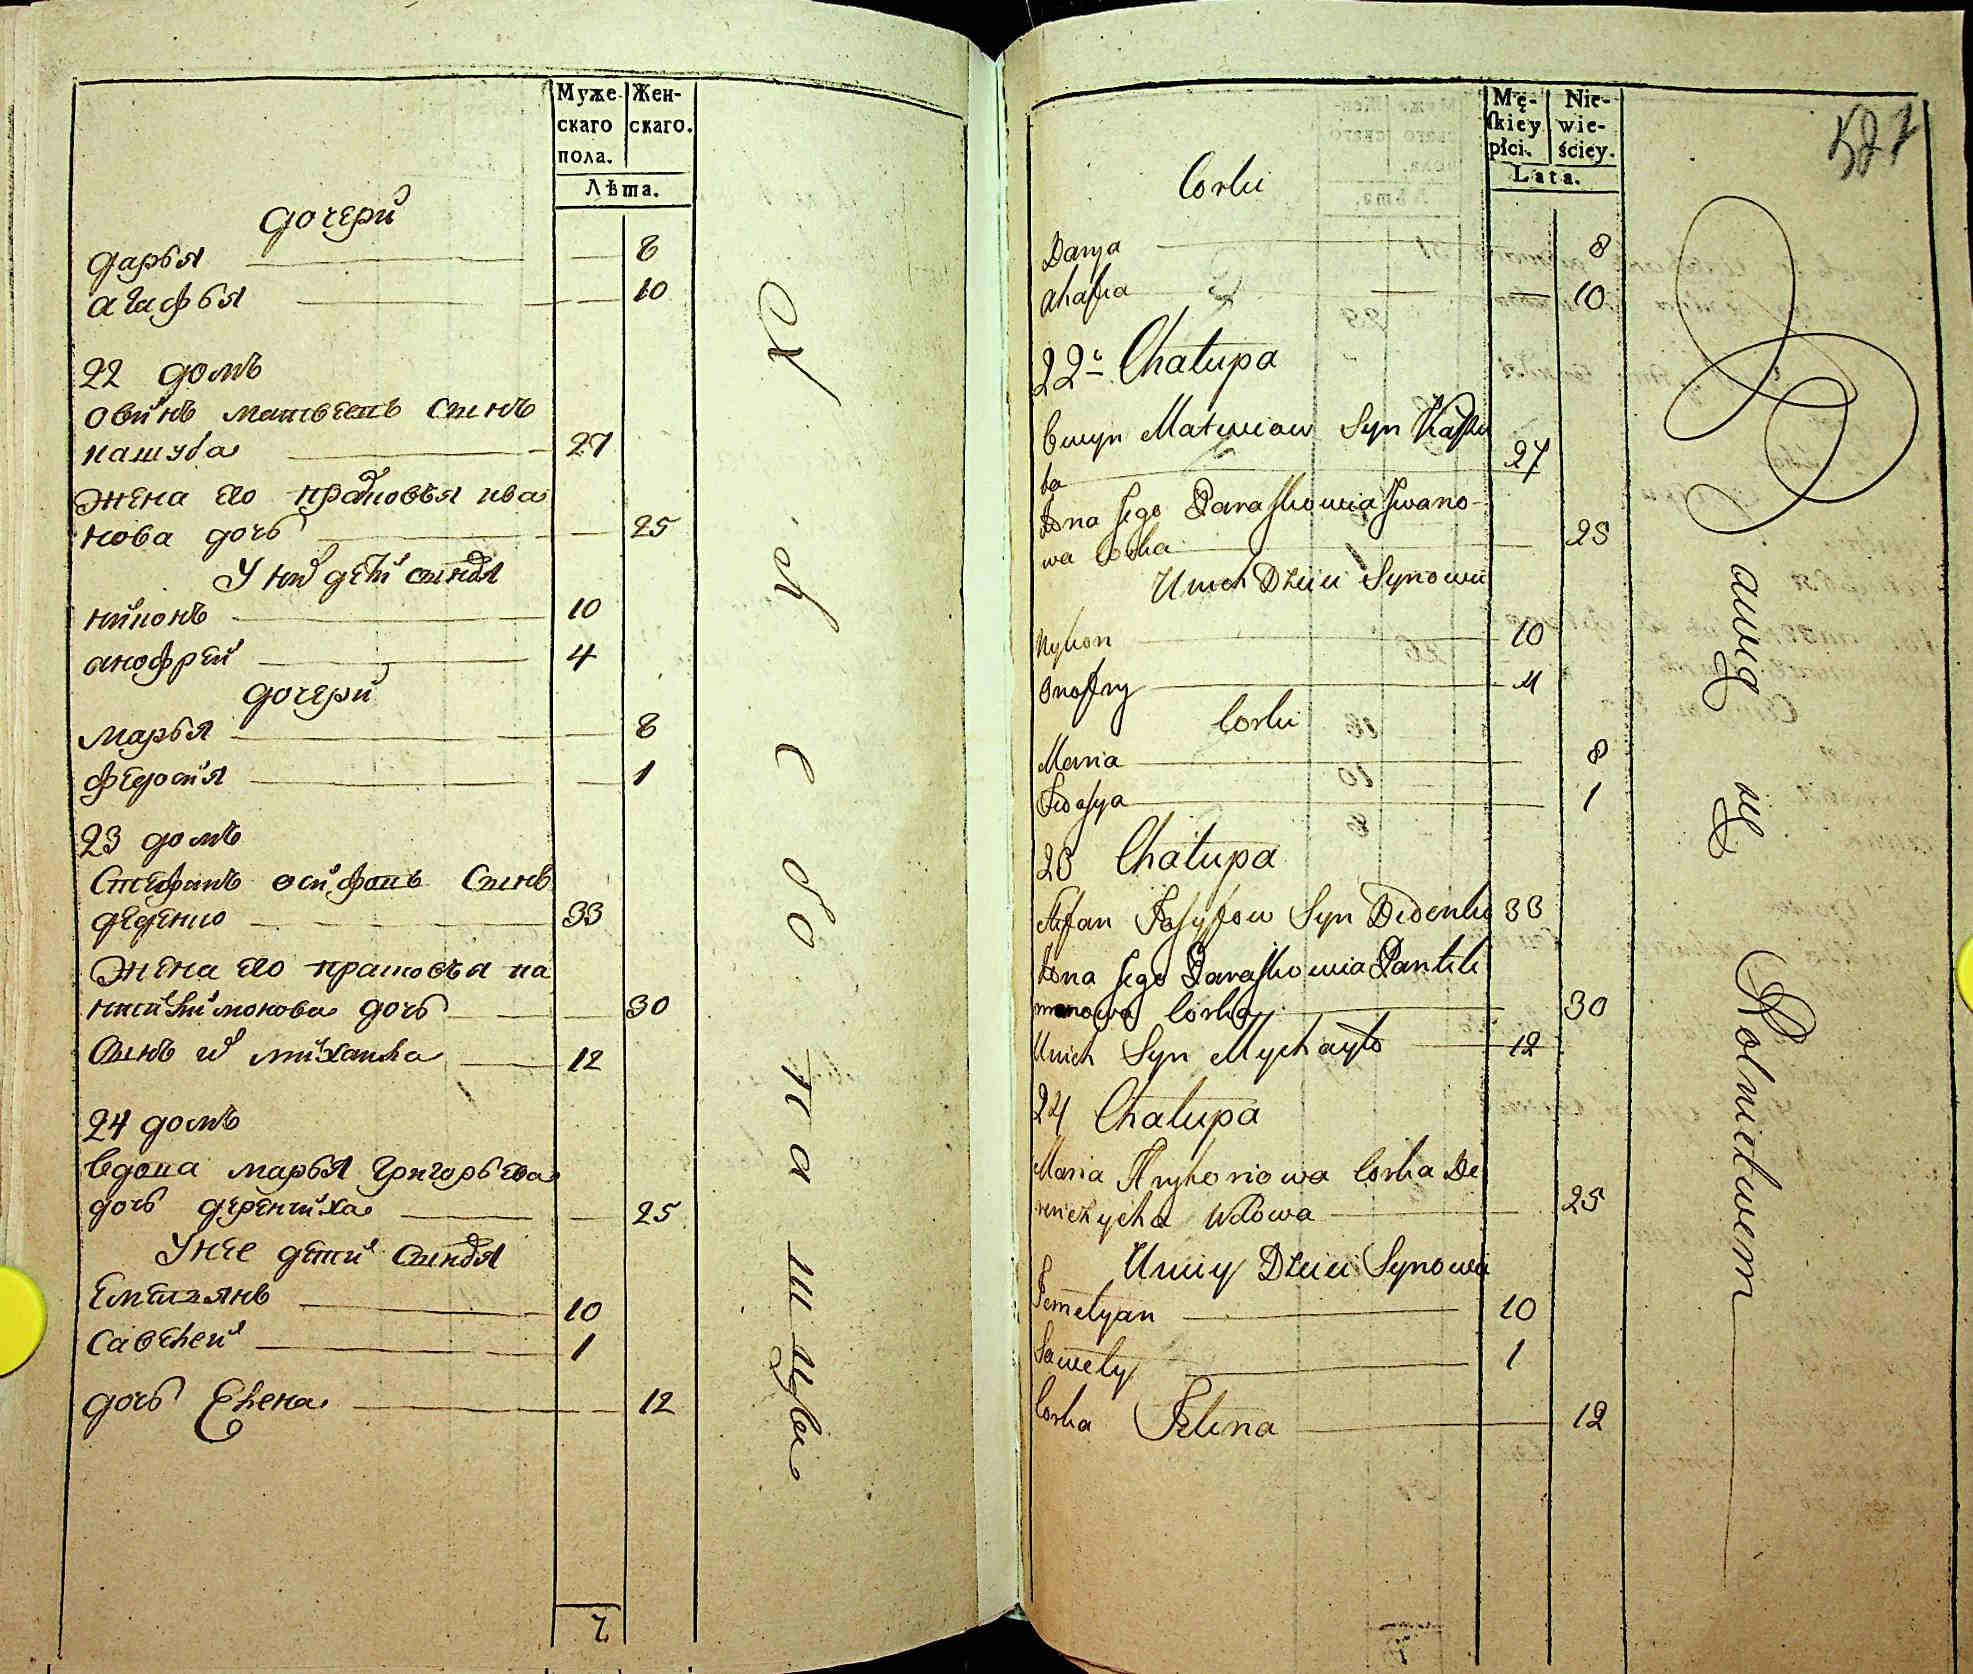 Муже
скаго
пола.
Жен-
скаго.
Лѣта.
дочери
дарья 8
агафья 10
22 домъ
овинъ матвеевъ сынъ
кашуба 27
жена его прасковья ива
нова дочь 25
У них дети сыновья
никонъ 10
анофрей 4
дочери
марья 8
федосия 1
23 домъ
Стефанъ осифовъ Сынъ
деденко 33
жена его прасковья па
нтилимонова дочь 30
Сынъ их михайла 12
24 домъ
вдова марья григорьева
дочь 25
У нее дети сыновья
Емельянъ 10
Савелей 1
дочь Елена 12
7
хлебопашцы
Mę-
skiey
płci.
Nie-
wie-
ściey.
Lata.
Corki
Darya 8
Ahafia 10
22 Chałupa
Owuyn Matwiow Syn Kaszu
ba 27
Żona Jego Paraskowia Iwano-
wa Corka 25
U nich Dzieci Synowie
Nykon 10
Onofry 4
Corki
Maria 8
Fedosya 1
23 Chałupa
Stefan Josyfow Syn Dedenko 33
Żona Jego Paraskowia Pantele
monowa Corka 30
U nich Syn Mychayło 12
24 Chałupa
Maria Hryhoriowa Corka De
reniczycha Wdowa 25
U niey Dzieci Synowie
Jemelyan 10
Sawely 1
Corka Jelena 12
527
Bawią się Rolnictwem